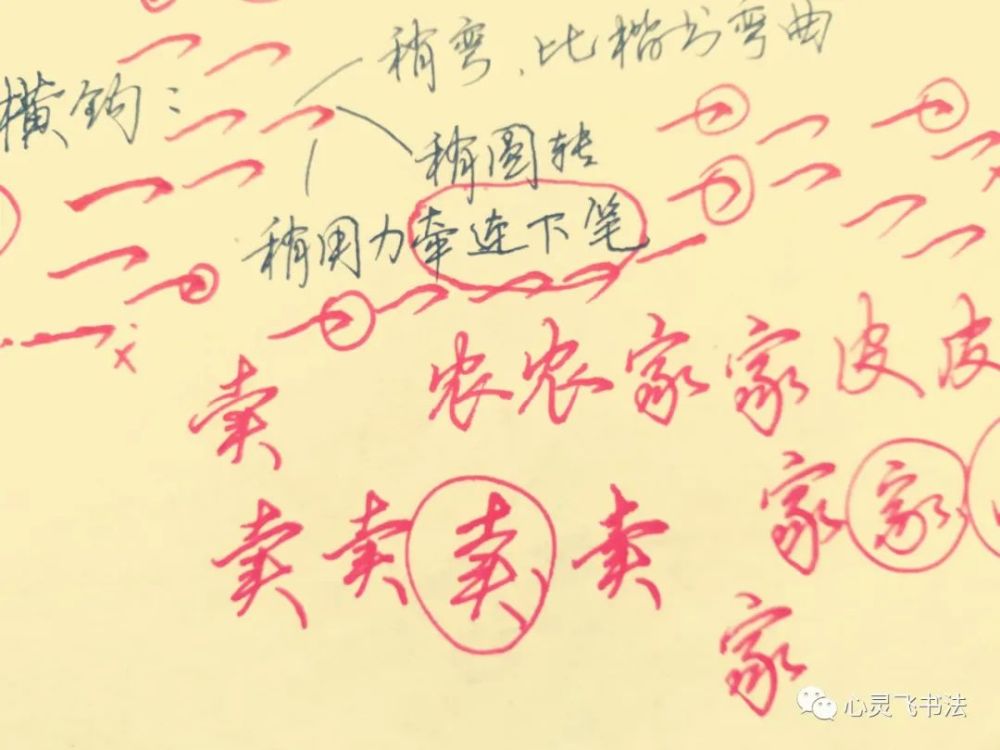 稍弯、比楷书弯曲
横钩：
稍圆转
稍用力牵连下笔
农农家家皮皮
卖
家家
卖卖卖卖
家
心灵飞书法